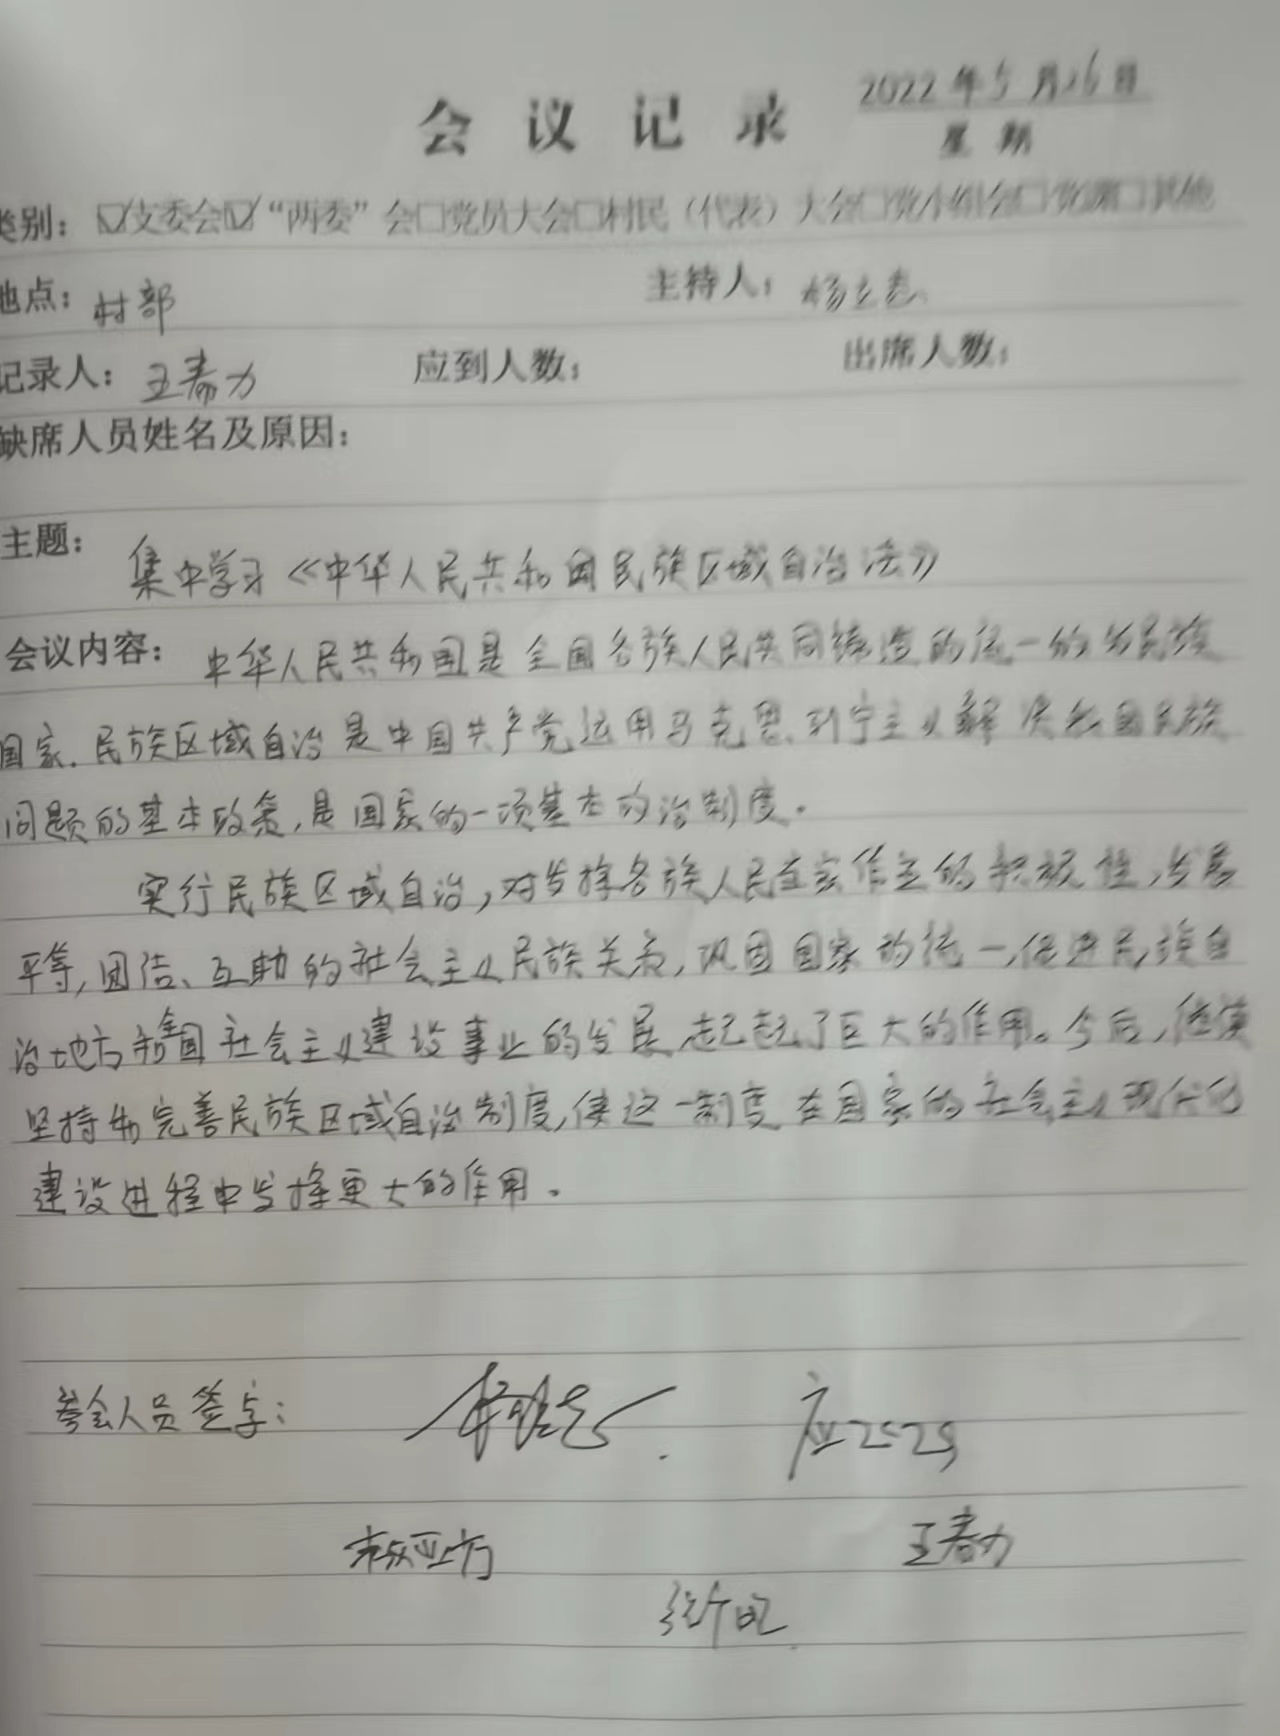 会议记录
2022年5月26日
星期
类别：☑支委会☑“两委”会□党员大会□村民（代表）大会□党小组会□党课□其他
地点：村部 主持人：
记录人：王春力 应到人数： 出席人数：
缺席人员姓名及原因：
主题：集中学习《中华人民共和国民族区域自治法》
会议内容：中华人民共和国是全国各族人民共同缔造的统一的多民族
国家.民族区域自治是中国共产党运用马克思、列宁主义解决我国民族
问题的基本政策,是国家的一项基本政治制度。
实行民族区域自治,对发挥各族人民当家作主的积极性,发展
平等,团结、互助的社会主义民族关系,巩固国家的统一,促进民族自
治地方和全国社会主义建设事业的发展,起起了巨大的作用。今后,继续
坚持和完善民族区域自治制度,使这一制度在国家的社会主义现代化
建设进程中发挥更大的作用。
参会人员签字：
王春力